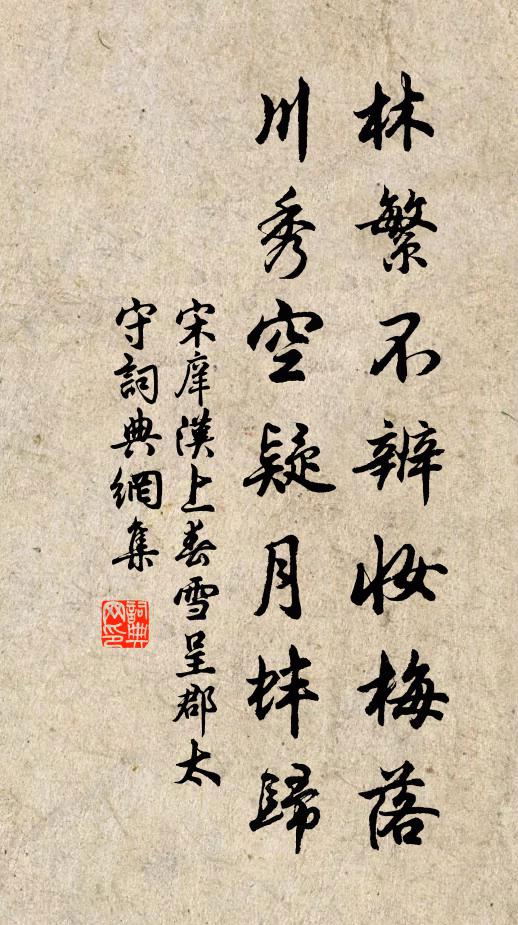 林繁不辨妝梅落
川秀空疑月蚌歸
宋庠漢上春雪呈郡太
守詞典網集
詞典
网印